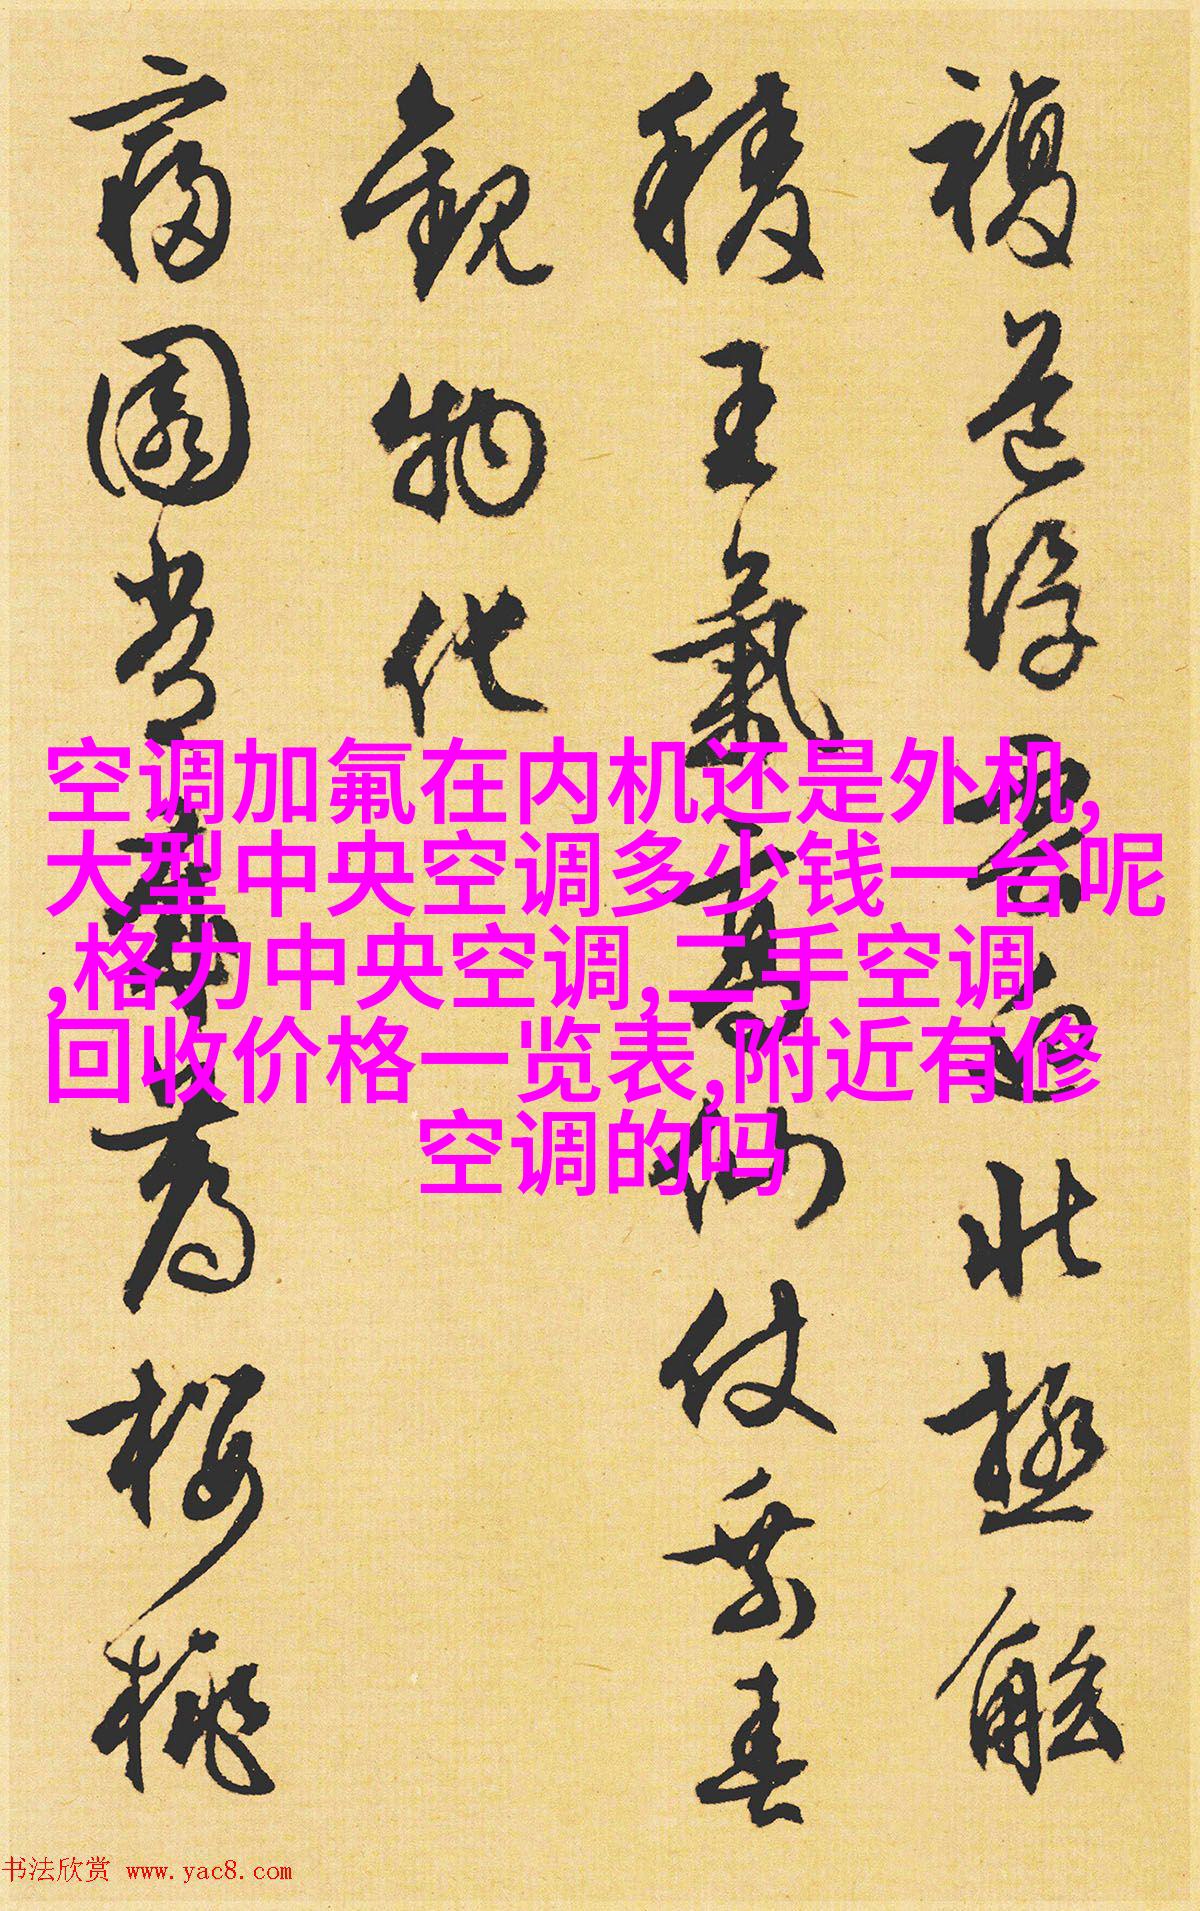 複道浮雲近北極觚
稜王氣高仙仗乘春
觀物化
園常薦為櫻桃
空调加氟在内机还是外机,
大型中央空调多少钱一台呢
,格力中央空调,二手空调
回收价格一览表,附近有修
空调的吗
书法欣赏 www.yac8.com